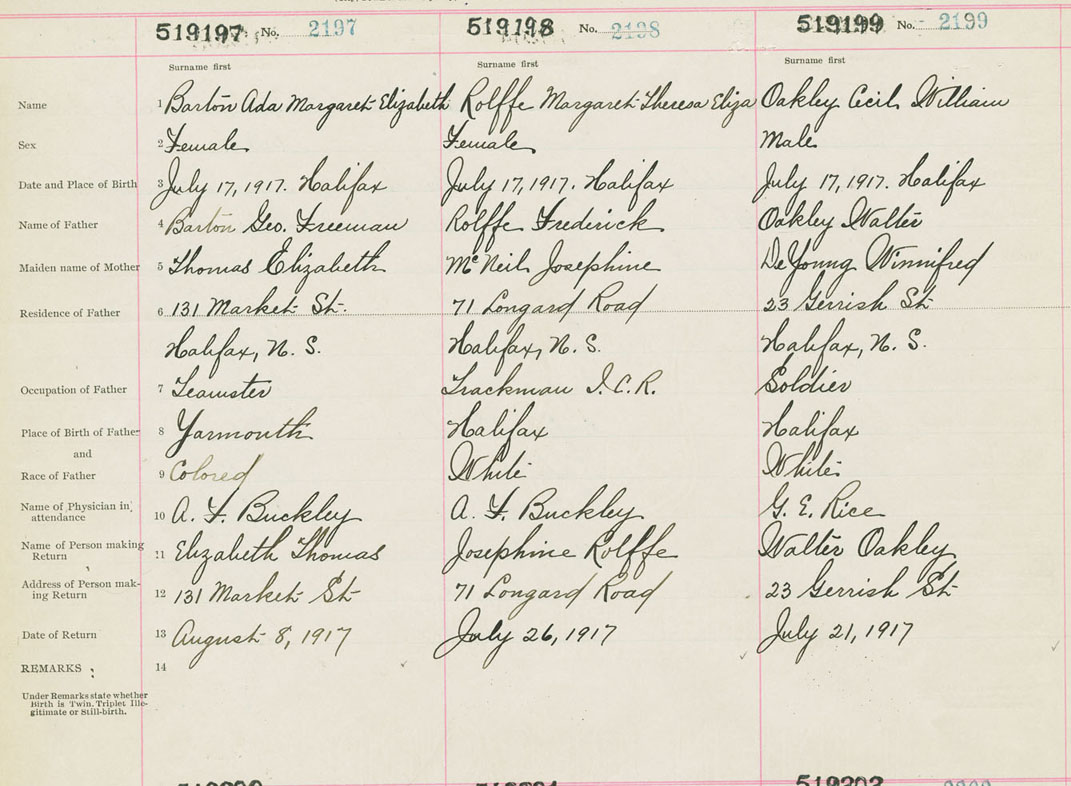 519197 No. 2197 519198 No. 2198 519199 No. 2199
Surname first Surname first Surname first
Name 1 Barton Ada Margaret Elizabeth Rolffe Margaret Theresa Eliza Oakley Cecil William
Sex 2 Female Female Male
Date and Place of Birth 3 July 17, 1917. Halifax July 17, 1917. Halifax July 17, 1917. Halifax
Name of Father 4 Barton Geo. Freeman Rolffe Frederick Oakley Walter
Maiden name of Mother 5 Thomas Elizabeth McNeil Josephine De Young Winnifred
Residence of Father 6 131 Market St. 71 Longard Road 23 Gerrish St
Halifax, N. S. Halifax, N. S. Halifax, N. S.
Occupation of Father 7 Teamster Trackman I.C.R. Soldier
Place of Birth of Father 8 Yarmouth Halifax Halifax
and
Race of Father 9 Colored White White
Name of Physician in
attendance 10 A. F. Buckley A. F. Buckley G. E. Rice
Name of Person making
Return 11 Elizabeth Thomas Josephine Rolffe Walter Oakley
Address of Person mak-
ing Return 12 131 Market St 71 Longard Road 23 Gerrish St
Date of Return 13 August 8, 1917 July 26, 1917 July 21, 1917
REMARKS : 14
Under Remarks state whether
Birth is Twin, Triplet Ille-
gitimate or Still-birth.